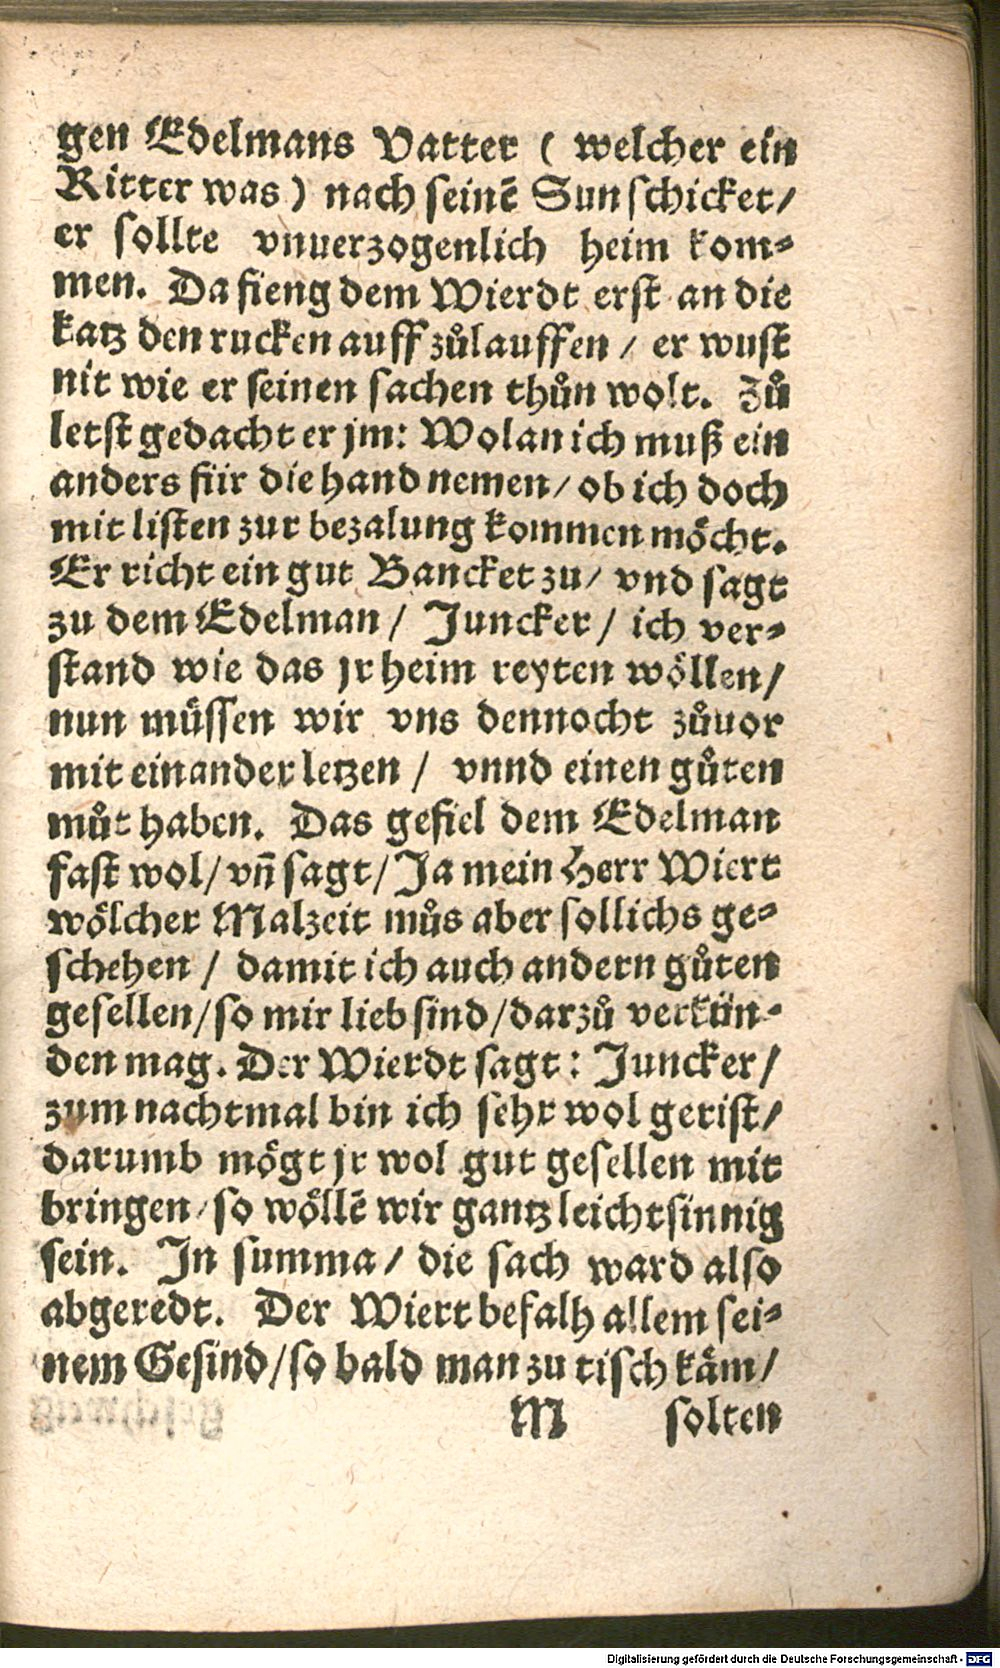 gen Edelmans Vatter ( welcher ein
Ritter was) nach seinē Sun schicket/
er sollte vnuerzogenlich heim kom⸗
men. Da fieng dem Wierdt erst an die
katz den rucken auff zůlauffen / er wust
nit wie er seinen sachen thůn wolt. Zů
letst gedacht er jm: Wolan ich muß ein
anders für die hand nemen/ ob ich doch
mit listen zur bezalung kommen möcht.
Er richt ein gut Bancket zu/ vnd sagt
zu dem Edelman/ Juncker/ ich ver⸗
stand wie das jr heim reyten wöllen/
nun müssen wir vns dennocht zůuor
mit einander letzen / vnnd einen gůten
můt haben. Das gefiel dem Edelman
fast wol/ vñ sagt/ Ja mein Herr Wiert
wölcher Malzeit můs aber sollichs ge⸗
schehen / damit ich auch andern gůten
gesellen/so mir lieb sind/darzů verkün⸗
den mag. Der Wierdt sagt: Juncker/
zum nachtmal bin ich sehr wol gerist/
darumb mögt jr wol gut gesellen mit
bringen/so wöllē wir gantz leichtsinnig
sein. In summa/ die sach ward also
abgeredt. Der Wiert befalh allem sei⸗
nem Gesind/so bald man zu tisch käm/
M solten
Digitalisierung gefördert durch die Deutsche Forschungsgemeinschaft - DFG